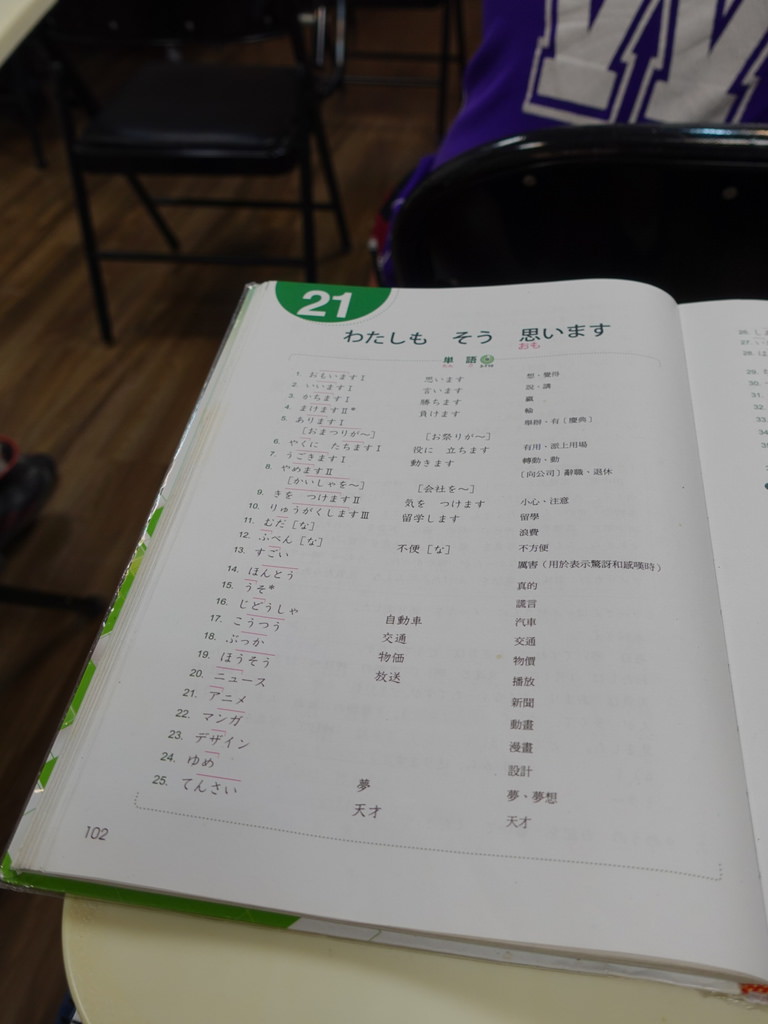 W
21
わたしも そう 思います
おも
単語
1. おもいますⅠ 思います 想、覺得
2. いいますⅠ 言います 說、講
3. かちますⅠ 勝ちます 贏
4. まけますⅡ* 負けます 輸
5. ありますⅠ 舉辦、有〔慶典〕
[おまつりが～] [お祭りが～]
6. やくに たちますⅠ 役に 立ちます 有用、派上用場
7. うごきますⅠ 動きます 轉動、動
8. やめますⅡ 〔向公司〕辭職、退休
[かいしゃを～] [会社を～]
9. きを つけますⅡ 気を つけます 小心、注意
10. りゅうがくしますⅢ 留学します 留學
11. むだ [な] 浪費
12. ふべん [な] 不便 [な] 不方便
13. すごい 厲害（用於表示驚訝和感嘆時）
14. ほんとう 真的
15. うそ* 謊言
16. じどうしゃ 自動車 汽車
17. こうつう 交通 交通
18. ぶっか 物価 物價
19. ほうそう 放送 播放
20. ニュース 新聞
21. アニメ 動畫
22. マンガ 漫畫
23. デザイン 設計
24. ゆめ 夢 夢、夢想
25. てんさい 天才 天才
102
26.
27.
28.
29.
30.
31.
32.
33.
34.